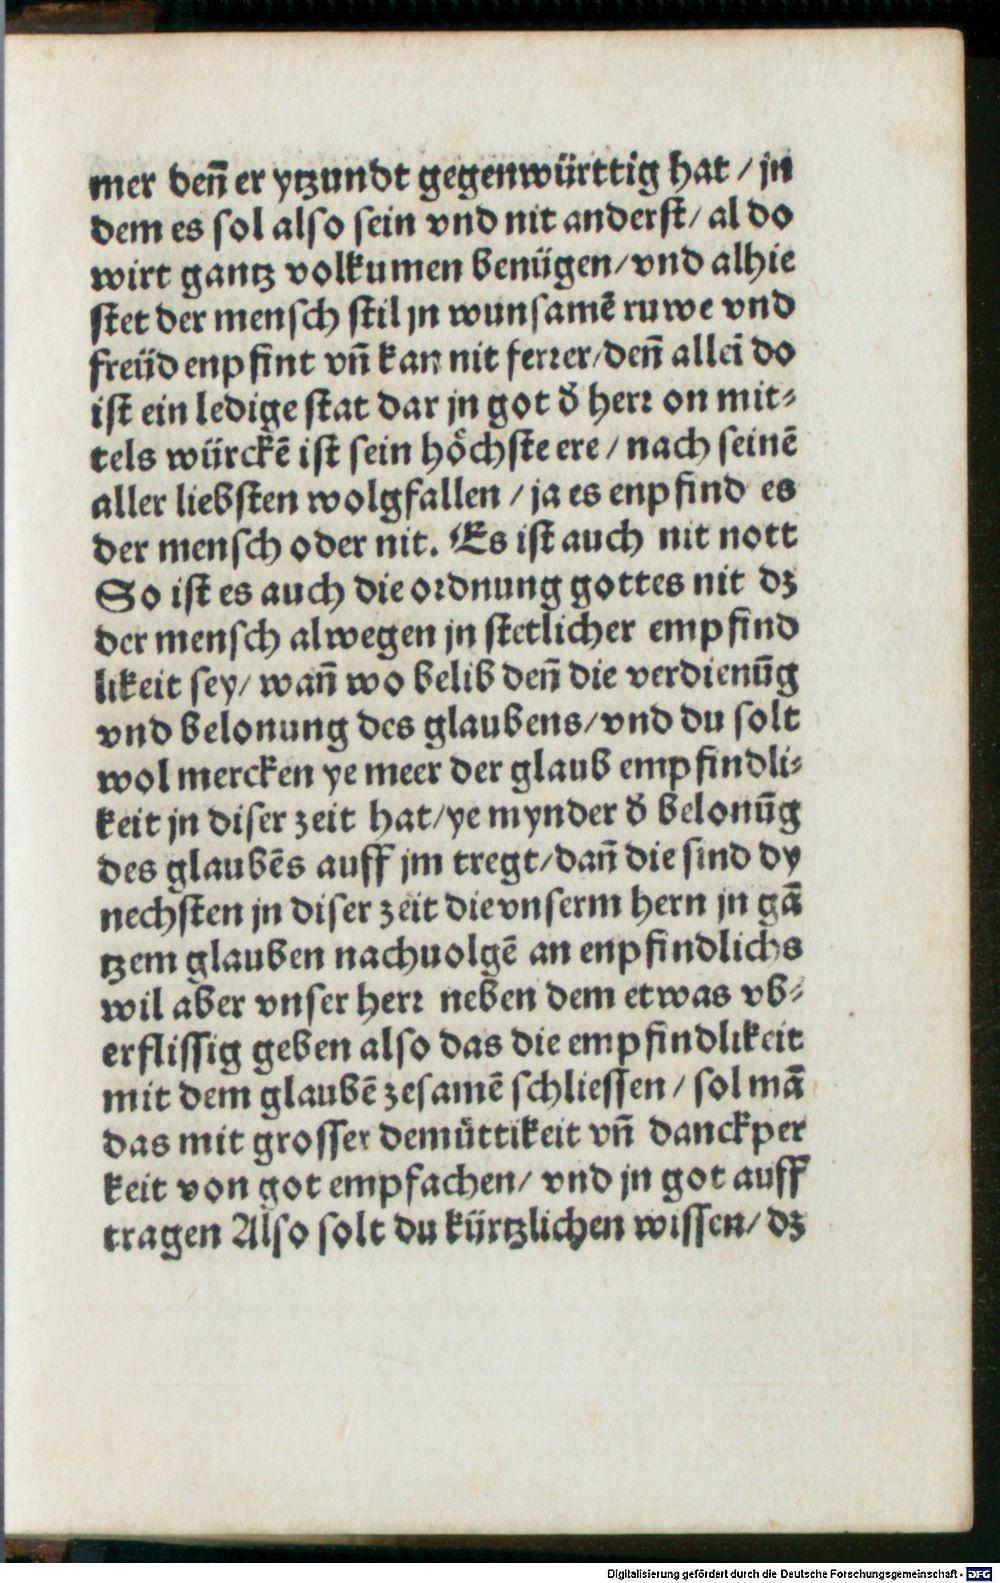 mer deñ er ytzundt gegenwürttig hat / jn
dem es sol also sein vnd nit anderst / al do
wirt gantz volkumen benügen / vnd alhie
stet der mensch stil jn wunsamē ruwe vnd
freüd enpfint vñ kan nit ferrer / deñ alleī do
ist ein ledige stat dar jn got d̄ herr on mit⸗
tels würckē ist sein höchste ere / nach seinē
aller liebsten wolgfallen / ja es enpfind es
der mensch oder nit. Es ist auch nit nott
So ist es auch die ordnung gottes nit dz
der mensch alwegen jn stetlicher empfind
likeit sey / wañ wo belib deñ die verdienūg
vnd belonung des glaubens / vnd du solt
wol mercken ye meer der glaub empfindli⸗
keit jn diser zeit hat / ye mynder d̄ belonūg
des glaubēs auff jm tregt / dañ die sind dy
nechsten jn diser zeit die vnserm hern jn gā
tzem glauben nachuolgē an enpfindlichs
wil aber vnser herr neben dem etwas vb⸗
erflissig geben also das die empfindlikeit
mit dem glaubē zesamē schliessen / sol mā
das mit grosser demüttikeit vñ danckper
keit von got empfachen / vnd jn got auff
tragen Also solt du kürtzlichen wissen / dz
Digitalisierung gefördert durch die Deutsche Forschungsgemeinschaft - DFG